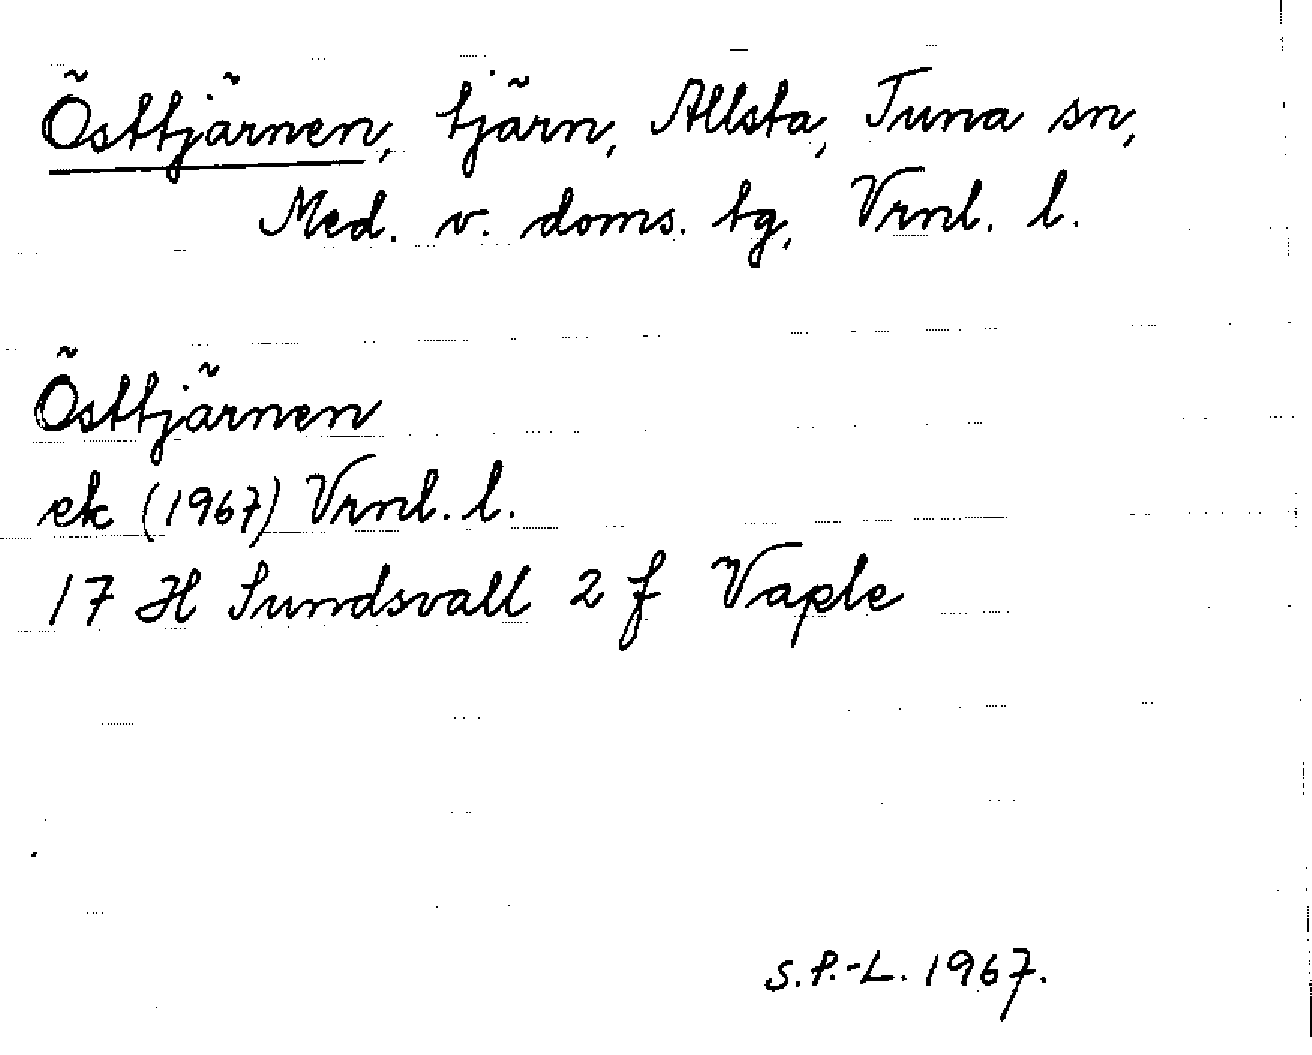 Östtjärnen, tjärn, Allsta, Tuna sn,
Med. v. doms. tg, Vrnl. l.
Östtjärnen
ek (1967) Vrnl. l.
17 H Sundsvall 2 f Vaple
S.P.-L. 1967.